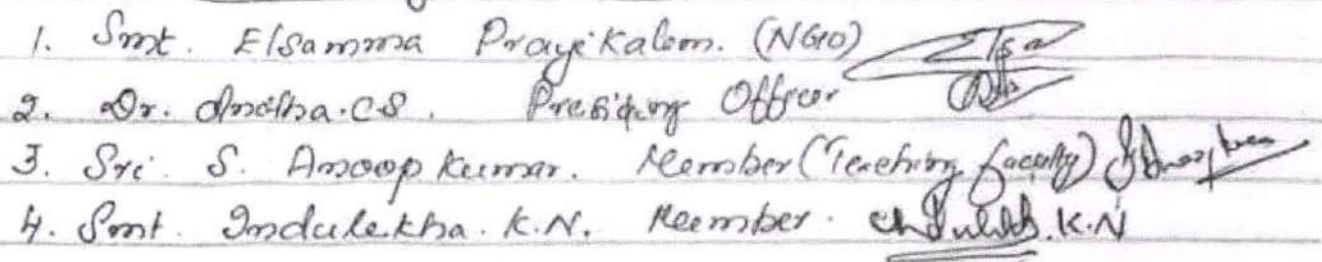 1. Smt. Elsamma Prayikalam. (NGO) Elsa
2. Dr. Anitha.CS. Presiding Officer
3. Sri. S. Anoop Kumar. Member (Teaching faculty)
4. Smt. Indulekha. K.N. Member. Indulekh.K.N